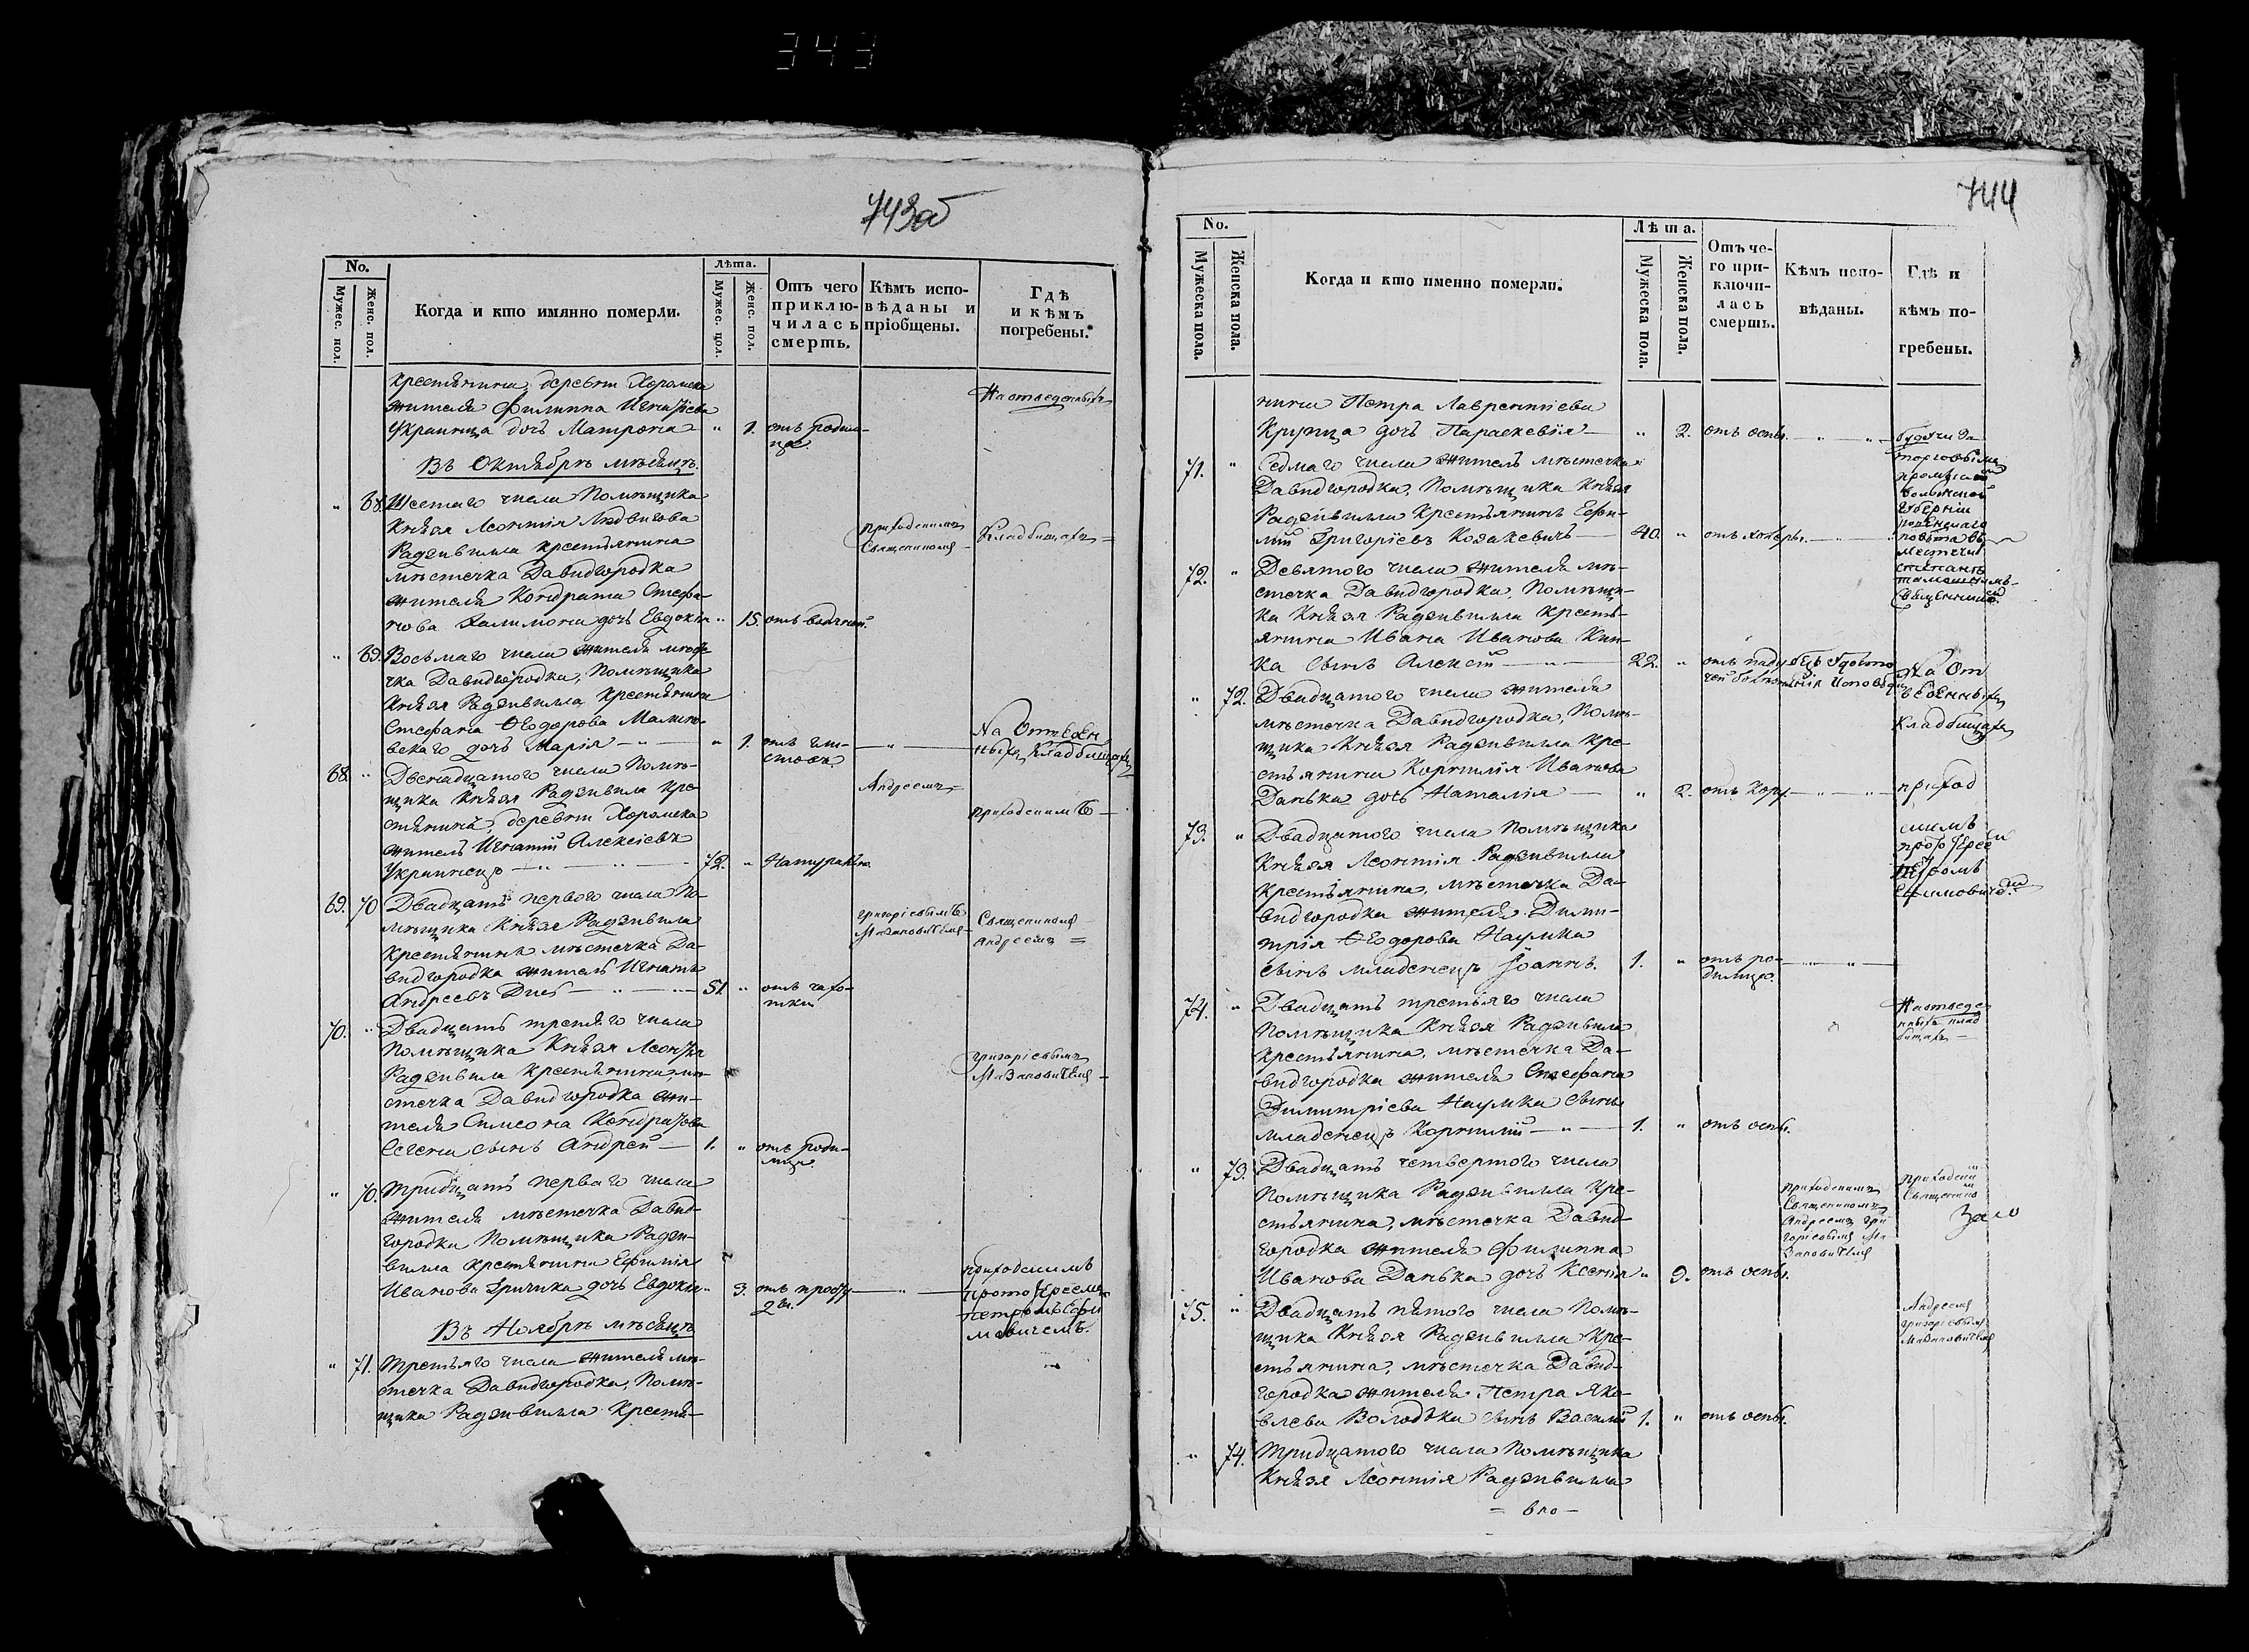 343
743об
No.
Лѣта.
Мужес. пол.
Женс. пол.
Когда и кто имянно померли.
Мужес. пол.
Женс. пол.
Отъ чего приклю-чилась смерть.
Кѣмъ испо-вѣданы и пріобщены.
Гдѣ и кѣмъ погребены.
крестьянина, деревни Хоромска
жителя Филиппа Игнатіева
Украинца дочь Матрона " 1. отъ родим-
ца.
На отведенныхъ
Въ Октябрѣ мѣсяцѣ.
" 68. Шестаго числа Помѣщика
Князя Леонтія Людвигова
Радзивилла крестьянина
мѣстечка Давидгородка
жителя Кондрата Стефа-
нова дочь Евдокія " 15. отъ водяной.
приходскимъ
Священникомъ
Кладбищахъ
" 69. Восьмаго числа жителя мѣсте-
чка Давидгородка, Помѣщика
Князя Радзивилла крестьянина
Стефана Ѳеодорова
дочь Марія " 1. отъ гли-
стовъ.
На Отведен
ныхъ Кладбищахъ
68. " Двенадцатого числа Помѣ-
щика Князя Радзивила кре-
стьянинъ, деревни Хоромска
житель Игнатій Алексіевъ
Украинецъ 72. " Натурально.
Андреемъ
приходскимъ
69. 70 Двадцать первого числа По-
мѣщика Князя Радзивила
крестьянинъ мѣстечка Да-
видгородка житель Игнатъ
Андреевъ 51 " отъ чахо-
тки
григоріевымъ
Мазановичемъ
Священникомъ
Андреемъ
70. " Двадцать третьяго числа
Помѣщика Князя Леонтія
Радзивила крестьянина, мѣ-
стечка Давидгородка жи-
теля Симеона Кондратова
сынъ Андрей 1. " отъ роди-
мца.
григоріевымъ
Мазановичемъ
" 70. Тридцать перваго числа
жителя мѣстечка Давид-
городка Помѣщика Радзи-
вилла крестьянина Ефимія
Иванова дочь Евдокія " 3. отъ просту-
ды.
приходскимъ
протоіереемъ
петромъ Сери
мовичемъ.
Въ Ноябрѣ мѣсяцѣ
" 71. Третьяго числа жителя мѣ-
стечка Давидгородка, Помѣ-
щика Радзивилла крестья-
744
No.
Лѣта.
Мужеска пола.
Женска пола.
Когда и кто именно померли.
Мужеска пола.
Женска пола.
Отъ че-го при-ключи-лась смерть.
Кѣмъ испо-вѣданы.
Гдѣ и кѣмъ по-гребены.
нина Петра Лаврентіева
Крупца дочь Параскевія " 2. отъ оспы.
71. " Седмаго числа житель мѣстечка
Давидгородка, Помѣщика Князя
Радзивилла крестьянинъ Ефи-
мій Григоріевъ Козакевичъ 40. " отъ холеры.
будучи за
торговымъ
волынской
Губерніи
повѣта въ
местечкѣ
степанѣ
тамошнимъ
священникомъ
72. " Девятого числа жителя мѣ-
стечка Давидгородка, Помѣщи-
ка Князя Радзивилла кресть-
янина Ивана Иванова
сынъ Алексій 22. " отъ паду-
чей
На От
веденныхъ
Кладбищахъ
" 72. Двадцатого числа жителя
мѣстечка Давидгородка, Помѣ-
щика Князя Радзивилла кре-
стьянина Корнилія Иванова
Данька дочь Наталія " 2. отъ кору.
приход
скимъ
петромъ
73. " Двадцатого числа Помѣщика
Князя Леонтія Радзивилла
крестьянина, мѣстечка Да-
видгородка жителя Дими-
трія Ѳеодорова Наумка
сынъ младенецъ Іоаннъ. 1. " отъ ро-
димца.
74. " Двадцать третьяго числа
Помѣщика Князя Радзивила
крестьянина, мѣстечка Да-
видгородка жителя Стефана
Димитріева Наумка сынъ
младенецъ Корнилій 1. " отъ оспы.
На отведе
нныхъ клад
бищахъ
" 73. Двадцать четвертого числа
Помѣщика Радзивилла кре-
стьянина, мѣстечка Давид-
городка жителя Филиппа
Иванова Данька дочь Ксенія " 9. отъ оспы.
приходскимъ
Священникомъ
Андреемъ гри
горіевымъ Ма
зановичемъ
приходскимъ
Священико
75. " Двадцать пятого числа Помѣ-
щика Князя Радзивилла кре-
стьянина, мѣстечка Давид-
городка жителя Петра Яко-
влева Володька сынъ Василій 1. " отъ оспы.
Андреемъ
григоріевымъ
Мазановичемъ
" 74. Тридцатого числа Помѣщика
Князя Леонтія Радзивилла